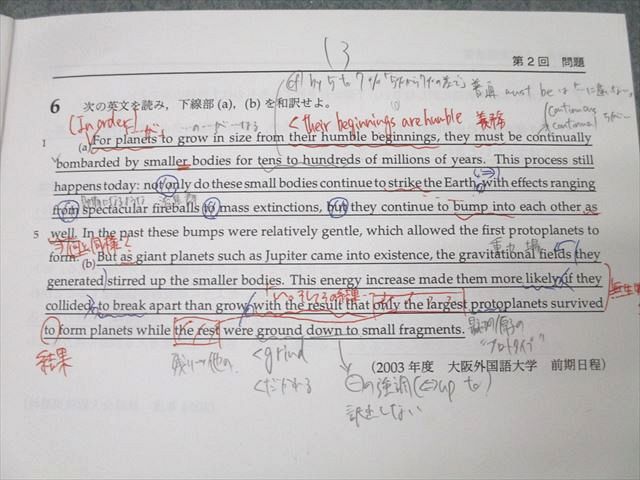 (3
第2回 問題
cf by 5 to 7 %
6 次の英文を読み，下線部 (a), (b) を和訳せよ。
(In order)
< their beginnings are humble 義務
continuous
continual
1 (a)For planets to grow in size from their humble beginnings, they must be continually
bombarded by smaller bodies for tens to hundreds of millions of years. This process still
happens today: not only do these small bodies continue to strike the Earth, with effects ranging
from spectacular fireballs to mass extinctions, but they continue to bump into each other as
5 well. In the past these bumps were relatively gentle, which allowed the first protoplanets to
form. (b)But as giant planets such as Jupiter came into existence, the gravitational fields they
generated stirred up the smaller bodies. This energy increase made them more likely, if they
collided, to break apart than grow, with the result that only the largest protoplanets survived
to form planets while the rest were ground down to small fragments.
結果
< grind
(2003 年度 大阪外国語大学 前期日程)
くだかれる
の強調 (⇔up to)
訳出しない